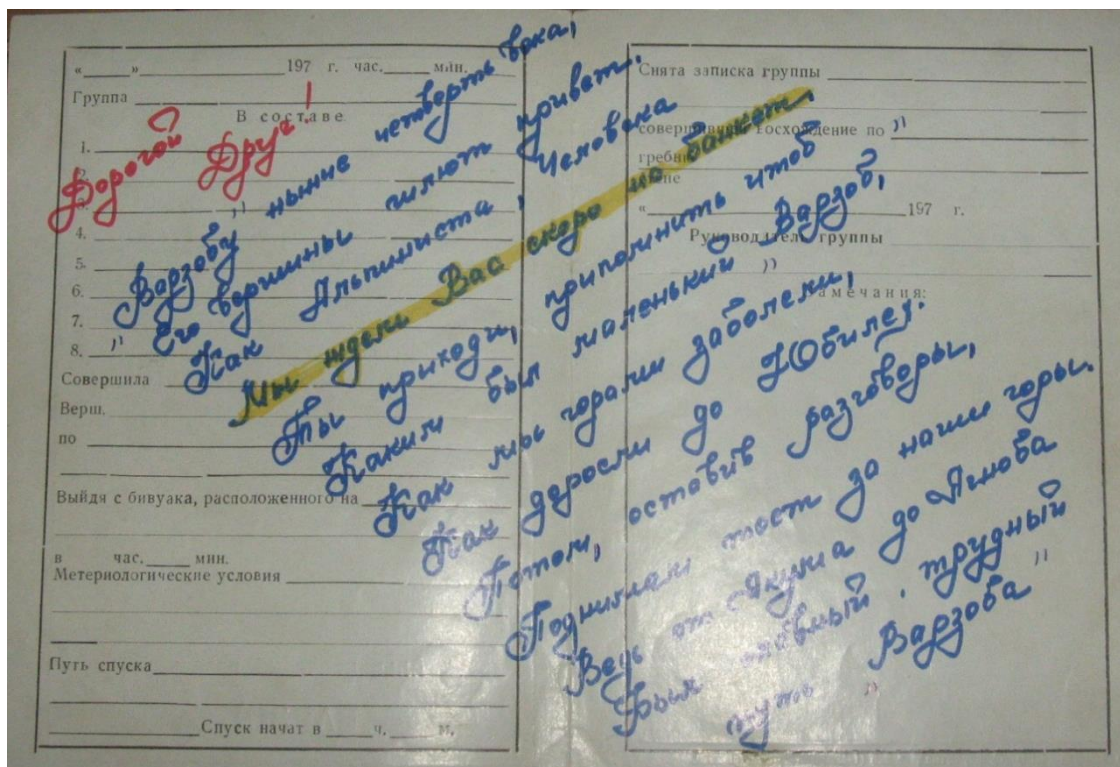 «____»____________197 г. час.____мин.
Группа
В составе
1.
2.
3.
4.
5.
6.
7.
8.
Совершила
Верш.
по
Выйдя с бивуака, расположенного на
в ____ час.____ мин.
Метериологические условия
Путь спуска
Спуск начат в ____ч.____м.
Снята записка группы
совершившей восхождение по
гребню
«____________________197 г.
Руководитель группы
Замечания:
Дорогой Друг!
„Варзобу" ныне четверть века,
Его вершины шлют привет.
Как Альпиниста, Человека
Мы ждем Вас скоро на банкет.
Ты приходи, припомнить чтоб
Каким был маленький „Варзоб",
Как мы горами заболели,
Как доросли до Юбилея.
Потом, оставив разговоры,
Поднимаем тост за наши горы.
Ведь от до Ягноба
Был славный, трудный
путь "Варзоба"